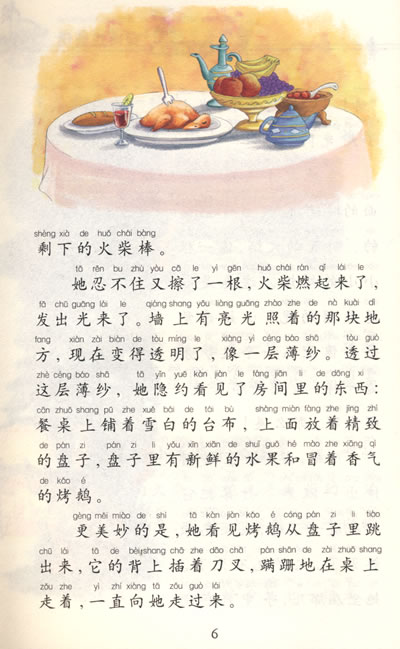 shèng xià de huǒ chái bàng
剩下的火柴棒。
tā rěn bu zhù yòu cā le yì gēn huǒ chái rán qǐ lái le
她忍不住又擦了一根，火柴燃起来了，
fā chū guāng lái le qiáng shang yǒu liàng guāng zhào zhe de nà kuài dì
发出光来了。墙上有亮光照着的那块地
fang xiàn zài biàn de tòu míng le xiàng yì céng báo shā tòu guò
方，现在变得透明了，像一层薄纱。透过
zhè céng báo shā tā yǐn yuē kàn jiàn le fáng jiān li de dōng xi
这层薄纱，她隐约看见了房间里的东西：
cān zhuō shang pū zhe xuě bái de tái bù shàng miàn fàng zhe jīng zhì
餐桌上铺着雪白的台布，上面放着精致
de pán zi pán zi li yǒu xīn xiān de shuǐ guǒ hé mào zhe xiāng qì
的盘子，盘子里有新鲜的水果和冒着香气
de kǎo é
的烤鹅。
gèng měi miào de shì tā kàn jiàn kǎo é cóng pán zi li tiào
更美妙的是，她看见烤鹅从盘子里跳
chū lái tā de bèi shang chā zhe dāo chā pán shān de zài zhuō shang
出来，它的背上插着刀叉，蹒跚地在桌上
zǒu zhe yì zhí xiàng tā zǒu guò lái
走着，一直向她走过来。
6